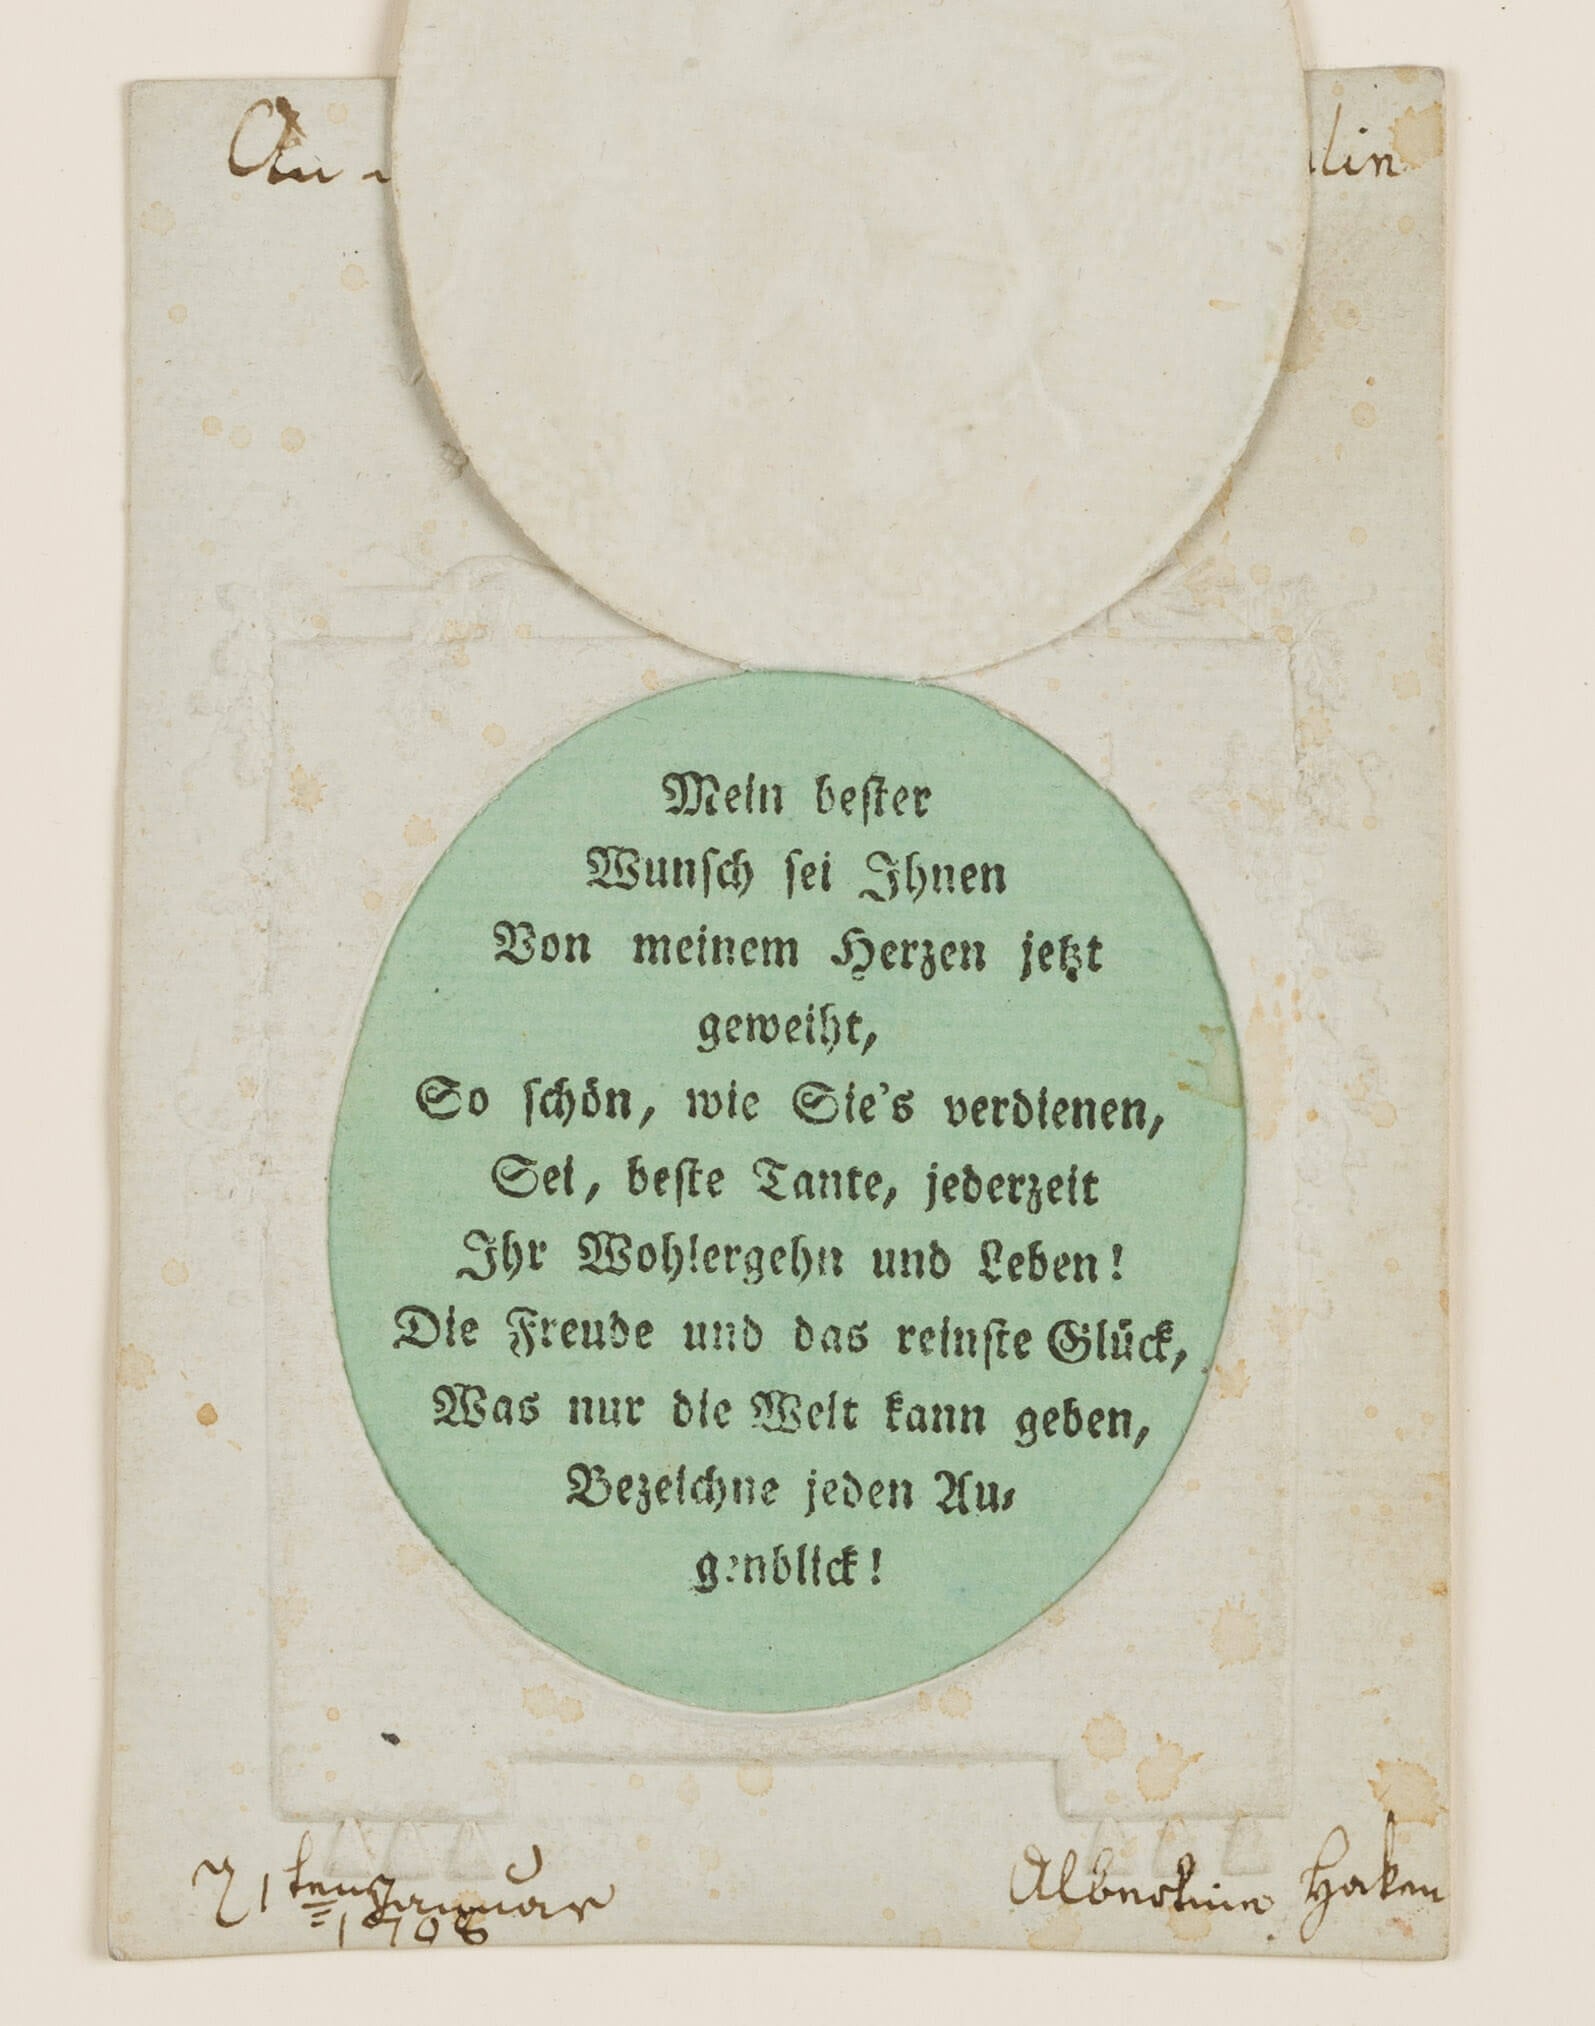 An
lin
Mein bester
Wunsch sei Ihnen
Von meinem Herzen jetzt
geweiht,
So schön, wie Sie's verdienen,
Sei, beste Tante, jederzeit
Ihr Wohlergehn und Leben!
Die Freude und das reinste Glück,
Was nur die Welt kann geben,
Bezeichne jeden Au-
genblick!
Januar
Albertine Haken